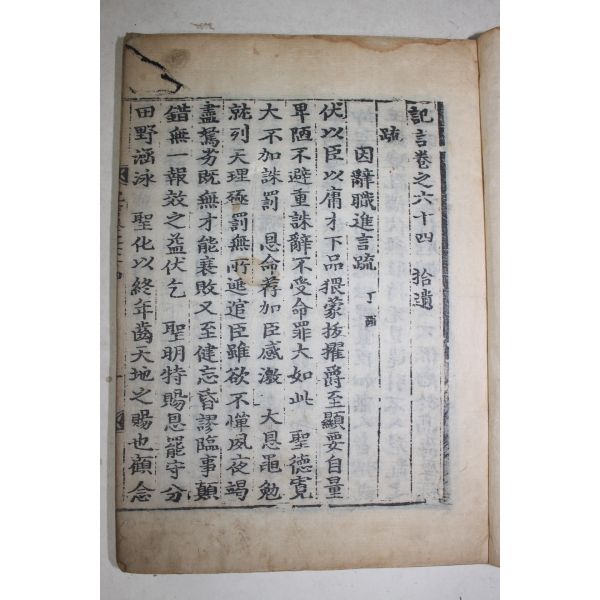 記言卷之六十四 拾遺
疏
因辭職進言疏 丁酉
伏以臣以庸才下品猥蒙拔擢爵至顯要自量
卑陋不避重誅辭不受命罪大如此 聖德寬
大不加誅罰 恩命荐加臣感激 大恩黽勉
就列天理殛罰無所逃逭臣雖欲不憚夙夜竭
盡駑劣旣無才能衰敗又至健忘昏謬臨事顚
錯無一報效之益伏乞 聖明特賜恩罷守分
田野涵泳 聖化以終年齒天地之賜也顧念